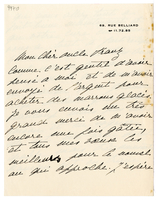 68, RUE BELLIARD
Tél. 11.72.95
Mon cher oncle Franz
Comme c'est gentil d'avoir
pensé à moi et de m'avoir
envoyé de l'argent pour
acheter des marrons glacés
je vous envois un très
grand merci de m'avoir
encore une fois gâtée
et tous mes vœux les
meilleurs pour la nouvel
an qui approche, j'espère